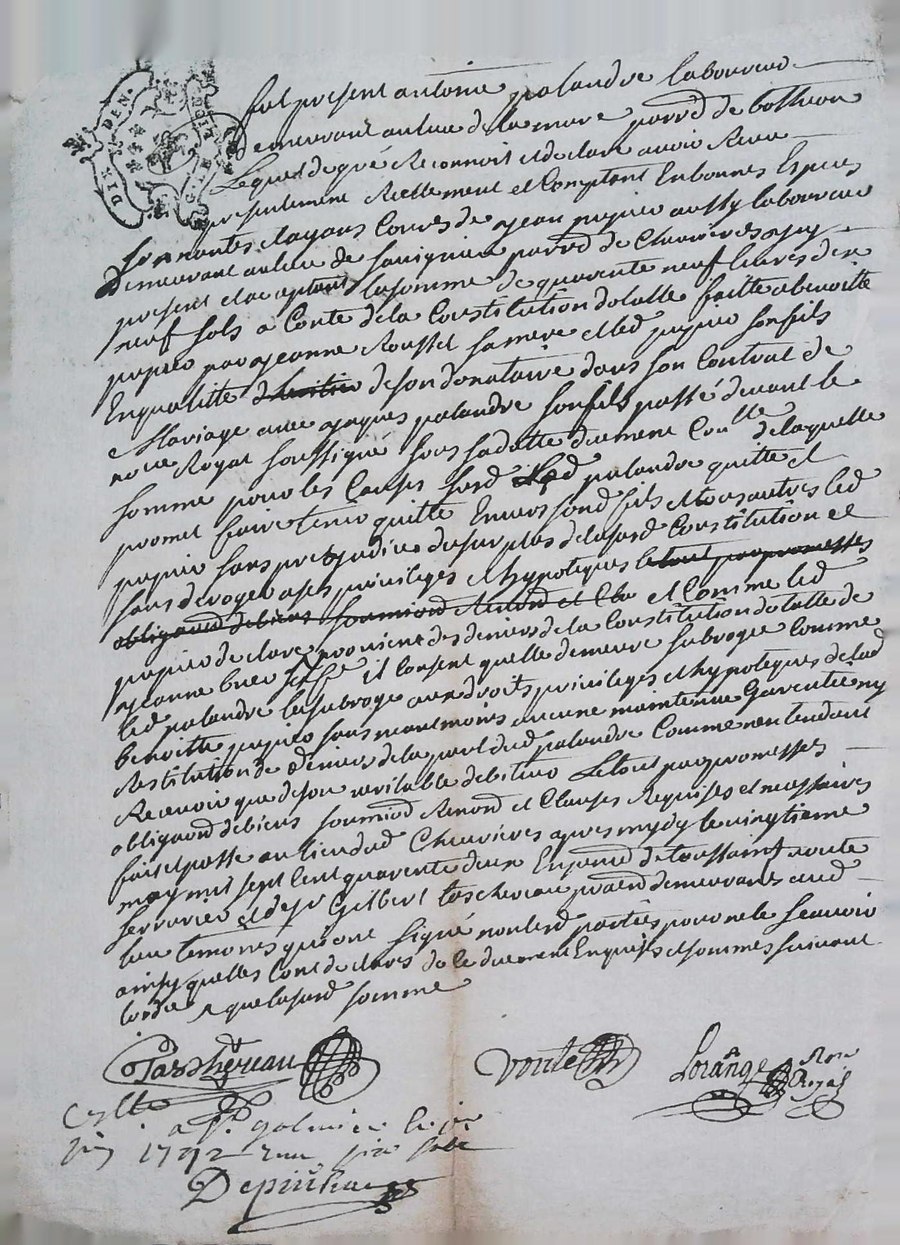 DIX DEN.
fut present antoine palandre laboureur
demeurant au lieu de la mure parr^e de botheon
Lequel de gré Reconnoit et declare avoir Receu
presentement Reellement et Comptant En bonnes Especes
Sonnantes et ayans Cours de jean pupier aussy laboureur
demeurant au lieu de Savignieu parr^e de Chevrieres icy
present et acceptant la somme de quarente neuf livres dix
neuf sols a Conte de la Constitution dotalle faitte a benoitte
pupier par jeanne Rousset sa mere et led pupier son fils
En qualitte de son donataire dans son Contrat de
Mariage avec jaques palandre son fils passé devant le
no^re Royal soussigné sous sa datte duement Con^lle de laquelle
somme pour les Causes susd led palandre quitte et
promet faire tenir quitte Envers sond fils et tous autres led
pupier sans prejudice du surplus de lasusd Constitution et
sans deroger a ses privileges et hypoteques le tout par promesses
obligaons de biens soumions Renons et Cla et Comme led
pupier declare provient des deniers de la Constitution dotalle de
jeanne sa femme il Consent quelle demeure subrogée Comme
led palandre la subroge aux droits privileges et hypoteques de lad
benoitte pupier sans neantmoins aucune maintenue Garentie ny
Restitution de deniers de la part dud palandre Comme nentendant
Recevoir que de son veritable debiteur Le tout par promesses
obligaons de biens soumions Renons et Clauses Requises et necessaires
fait et passé au lieu dud Chevrieres apres mydy le vingtieme
may mil sept Cent quarente deux En presence de toussaint voute
serrurier et de s^r Gilbert tascherau pratn demeurants aud
lieu temoins qui ont signé non lesd parties pour ne le scavoir
ainsy quelles Cont declaré de ce duement Enquises et sommes suivant
lordce que lasusd somme
Tascherau
voute
Lorange No^re Royal
Cllé a S^t galmier le
juin 1742 Recu six sols